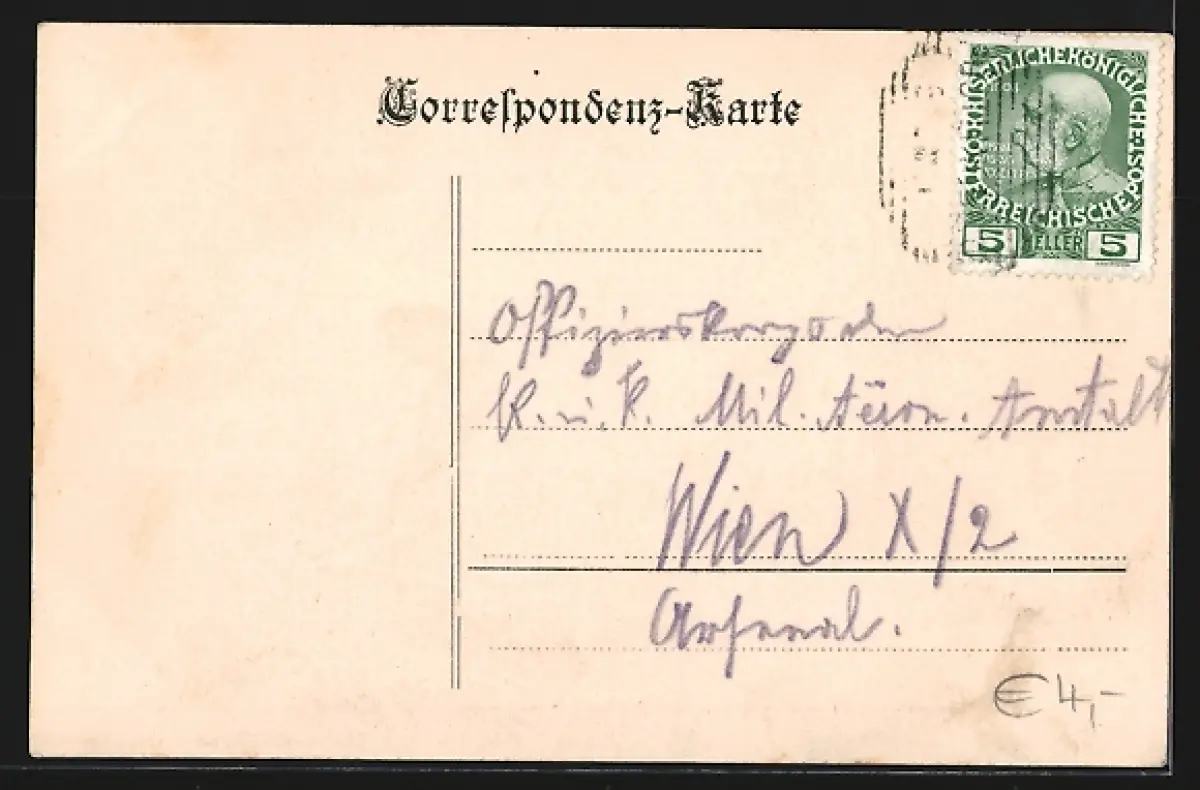 Correspondenz-Karte
KAISERLICHE KÖNIGLICHE ÖSTERREICHISCHE POST
5 HELLER 5
Offizierskorps der
k. u. k. Mil. Aëron. Anstalt
Wien X/2
Arsenal.
€ 4,-